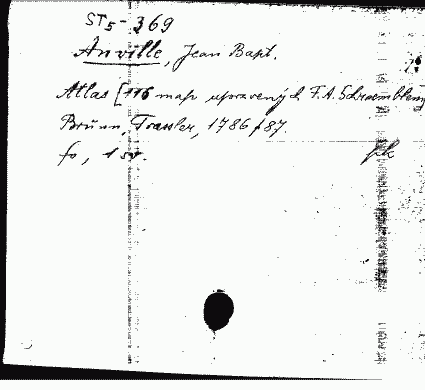 ST5-369
Anville, Jean Bapt.
Atlas [116 map upravených F. A. Schraemblem
Brünn, Trassler, 1786/87.
fo, 1 sv.